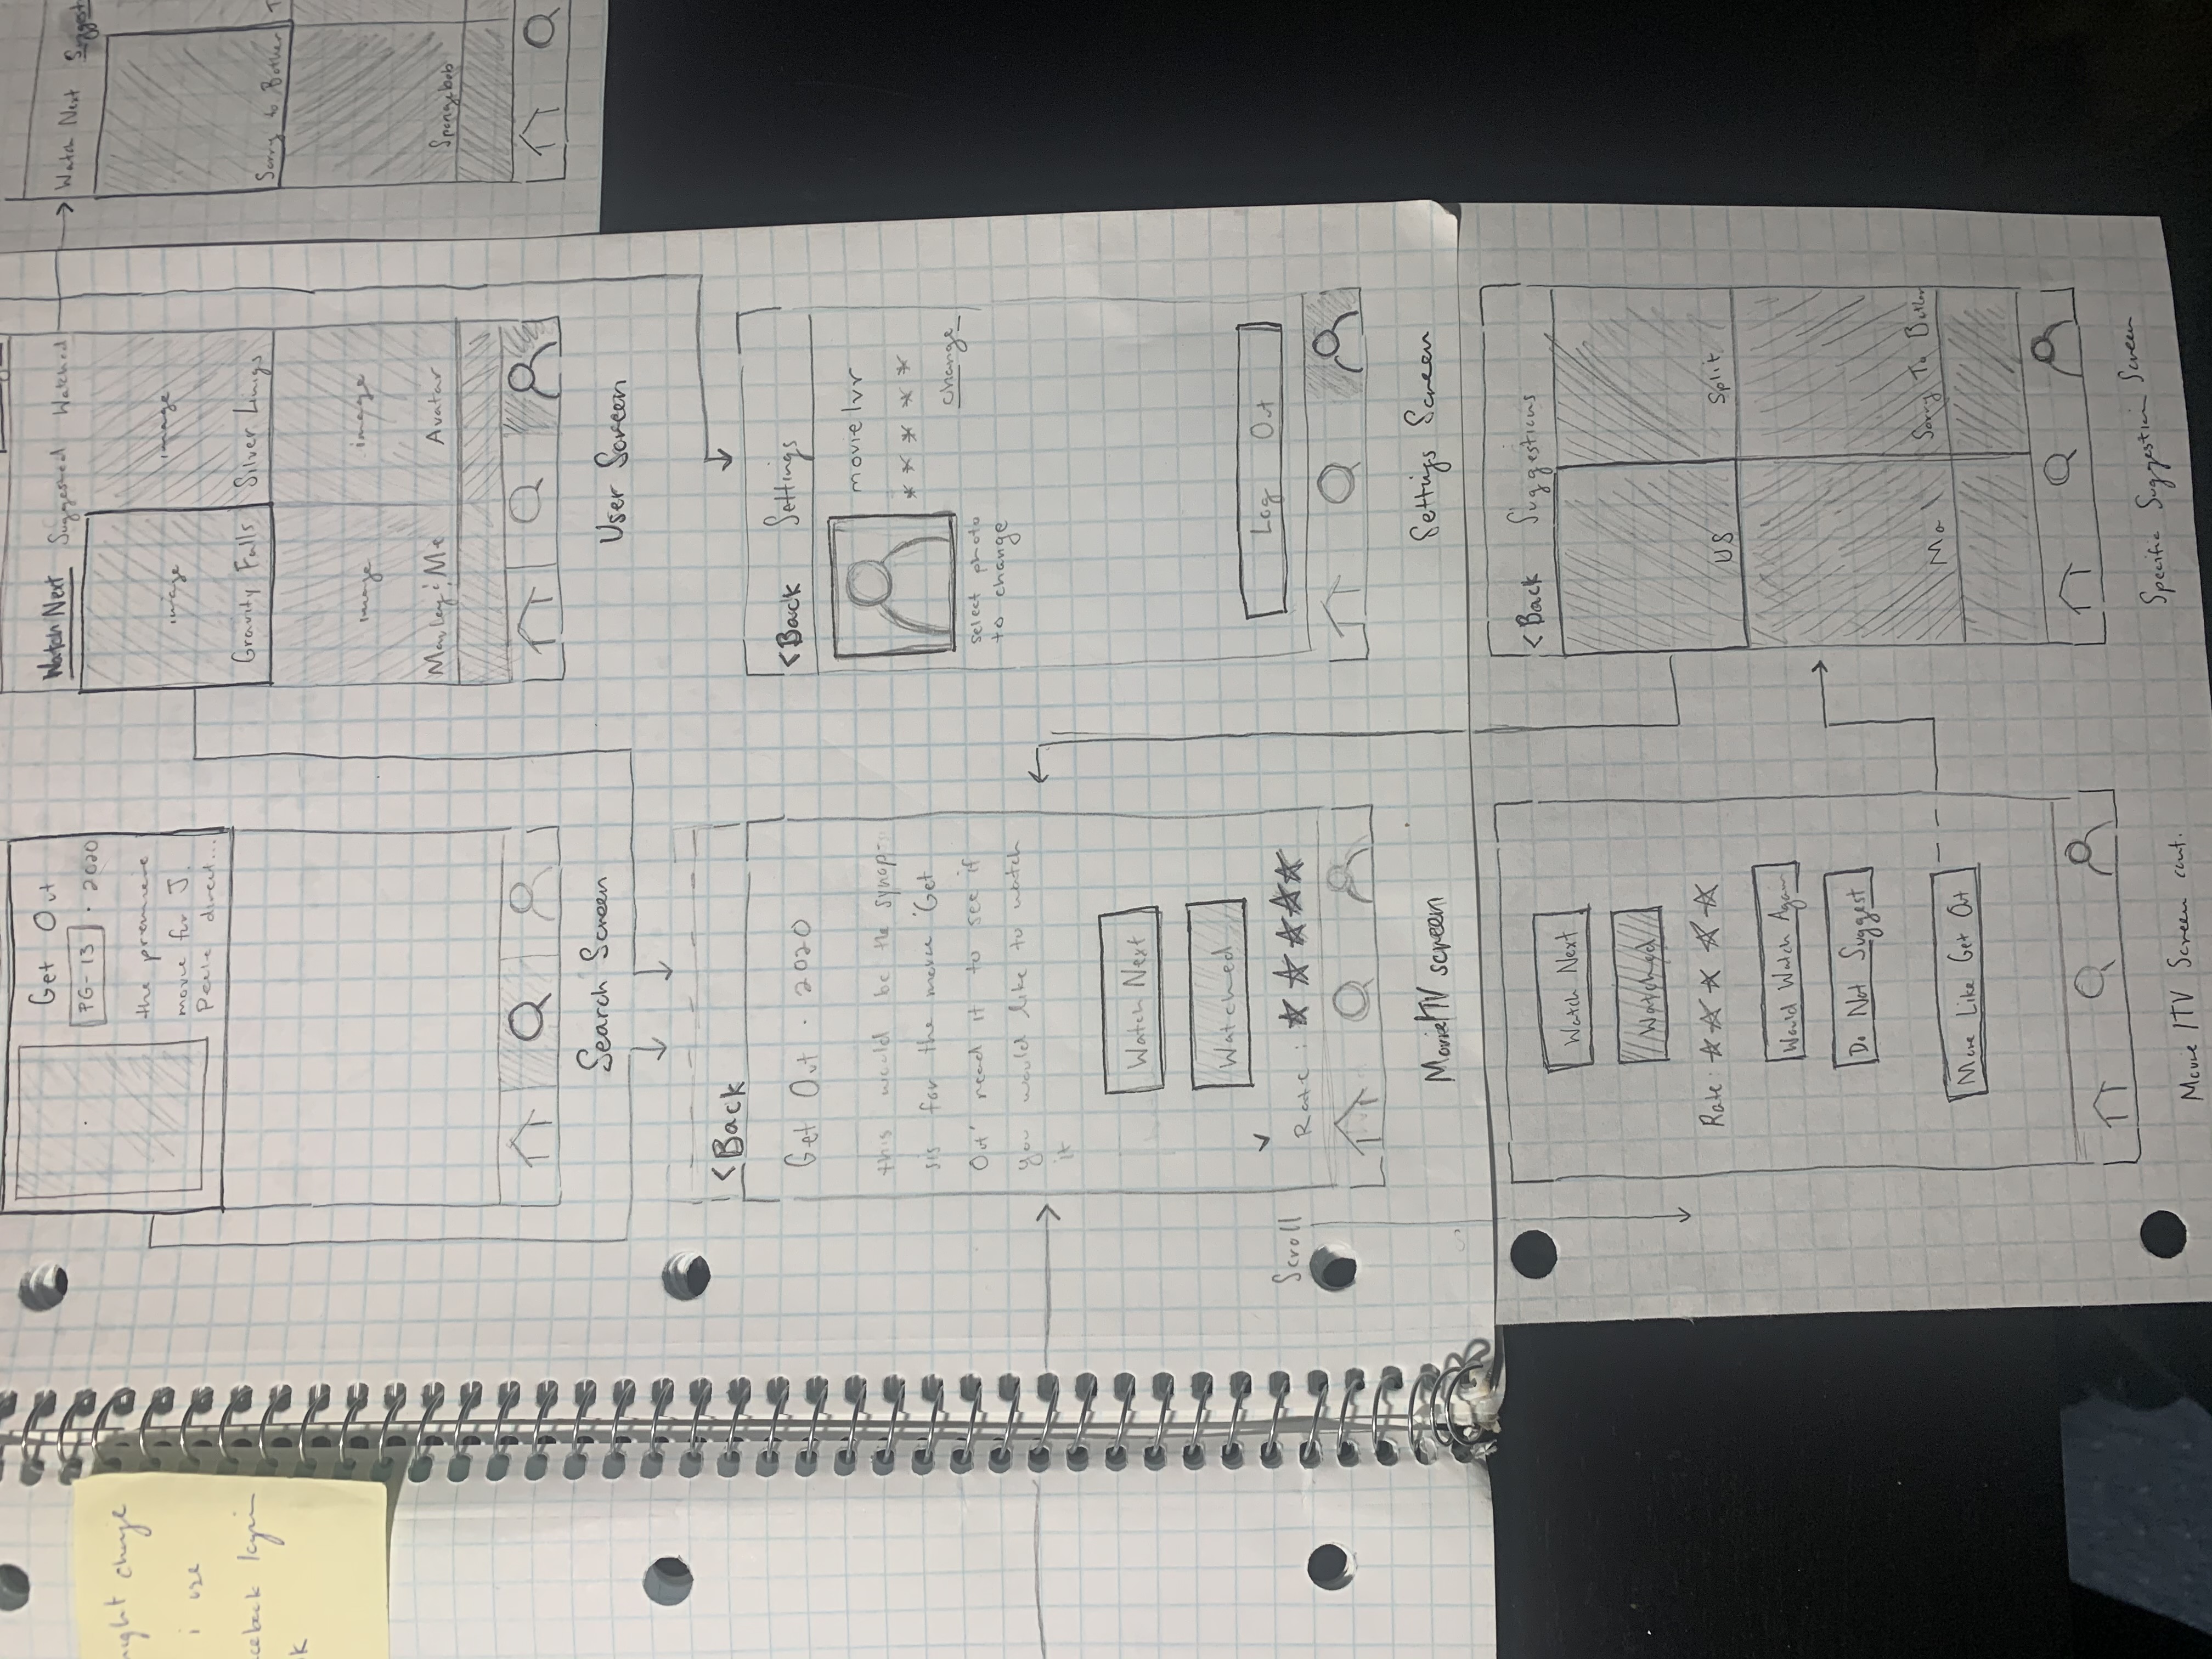 might change
i use
login
Get Out
PG-13 · 2020
the premiere
movie for J.
Peele direct...
Search Screen
Watch Next Suggested Watched
image image
Gravity Falls Silver Linigs
image image
Marley & Me Avatar
User Screen
Watch Next Suggest
Sorry to Bother T
Spongebob
<Back
Get Out · 2020
this would be the synop-
sis for the movie 'Get
Out' read it to see if
you would like to watch
it
Watch Next
Watched
Rate:
Movie/TV screen
<Back Settings
movielvr
* * * * *
change
select photo
to change
Log Out
Settings Screen
Scroll
Watch Next
Watched
Rate:
Would Watch Again
Do Not Suggest
More Like Get Out
Movie/TV Screen cont.
<Back Suggestions
US Split
Ma Sorry To Bother
Specific Suggestion Screen